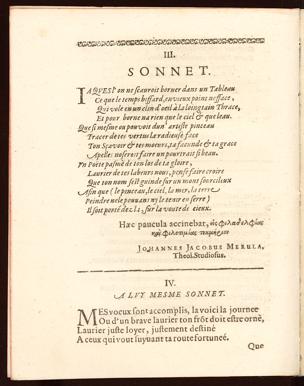 III.
SONNET.
on ne sçauroit borner dans un Tableau
Ce que le temps biffard, en vieux poins n'efface,
Qui vole en un clin d'oeil à la loingtain Thrace,
Et pour borne na rien que le ciel & que leau.
Que si mesme on pouvoit dun artiste pinceau
Tracer de tes vertus la radieuse face
Ton sçavoir & tes moeurs, ta faconde & ta grace
Apelle noseroit faire un pourtrait si beau.
Poëte pasmé de ton los de ta gloire,
Laurier de tes labeurs nous, pense faire croire
Que ton nom soit guindé sur un mont sourcileux
Afin que (le pinceau, le ciel, la mer, la terre
Peindre ne le pouvans ny le tenir en serre)
Il soit porté de là, sur la voute de cieux.
Hæc paucula accinebat,
JOHANNES JACOBUS MERULA,
Theol. Studiosus.
IV.
A LUY MESME SONNET.
MES voeux sont accomplis, la voici la journee
Ou d'un brave laurier ton frõt doit estre orné,
Laurier juste loyer, justement destiné
A ceux qui vout suyuant ta route fortuneé.
Que